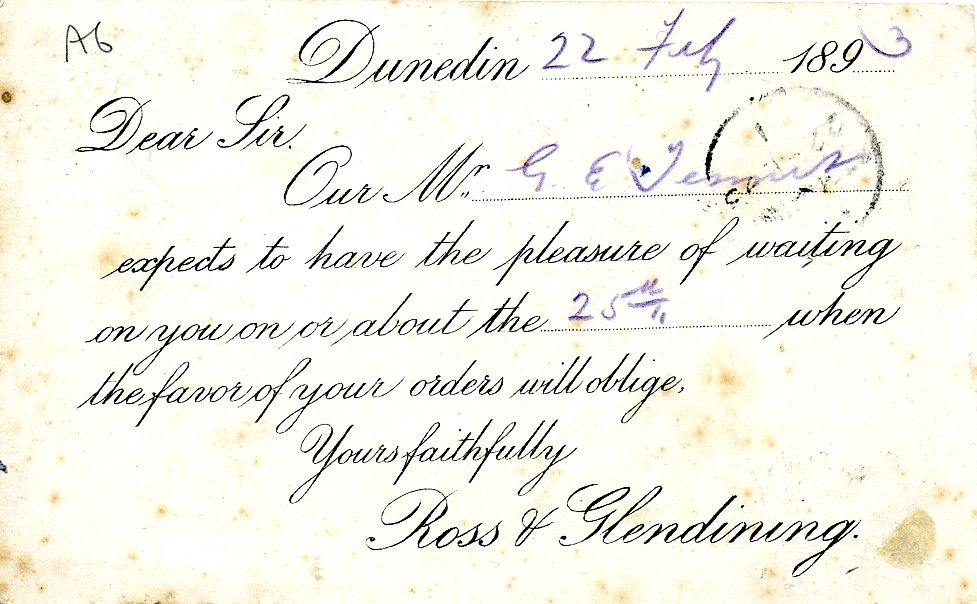 A6
Dunedin 22 Feby 1893
Dear Sir.
Our Mr. G. E.
expects to have the pleasure of waiting
on you on or about the 25th when
the favor of your orders will oblige,
Yours faithfully
Ross & Glendining.